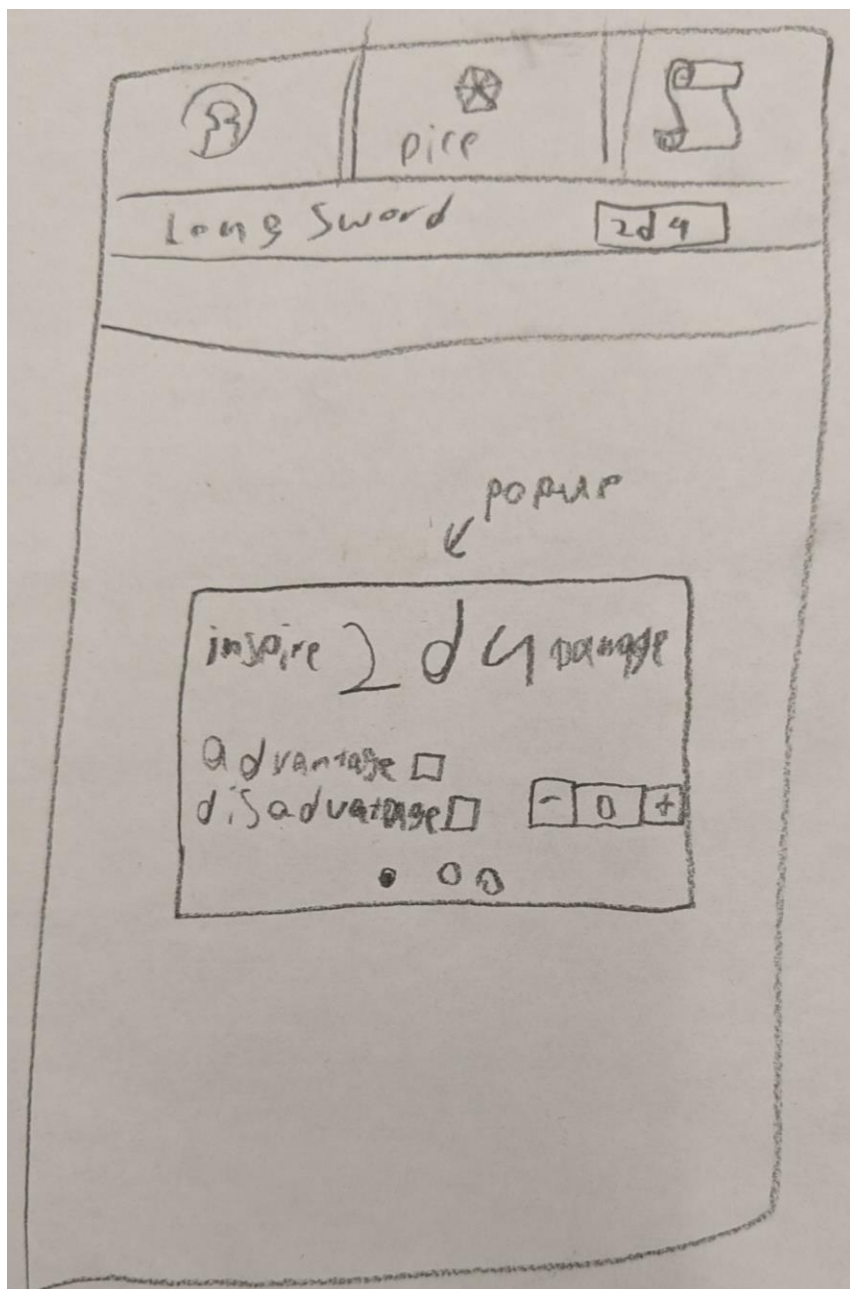 Dice
Long Sword 2d4
popup
inspire 2d4 Damage
advantage
disadvatage - 0 +